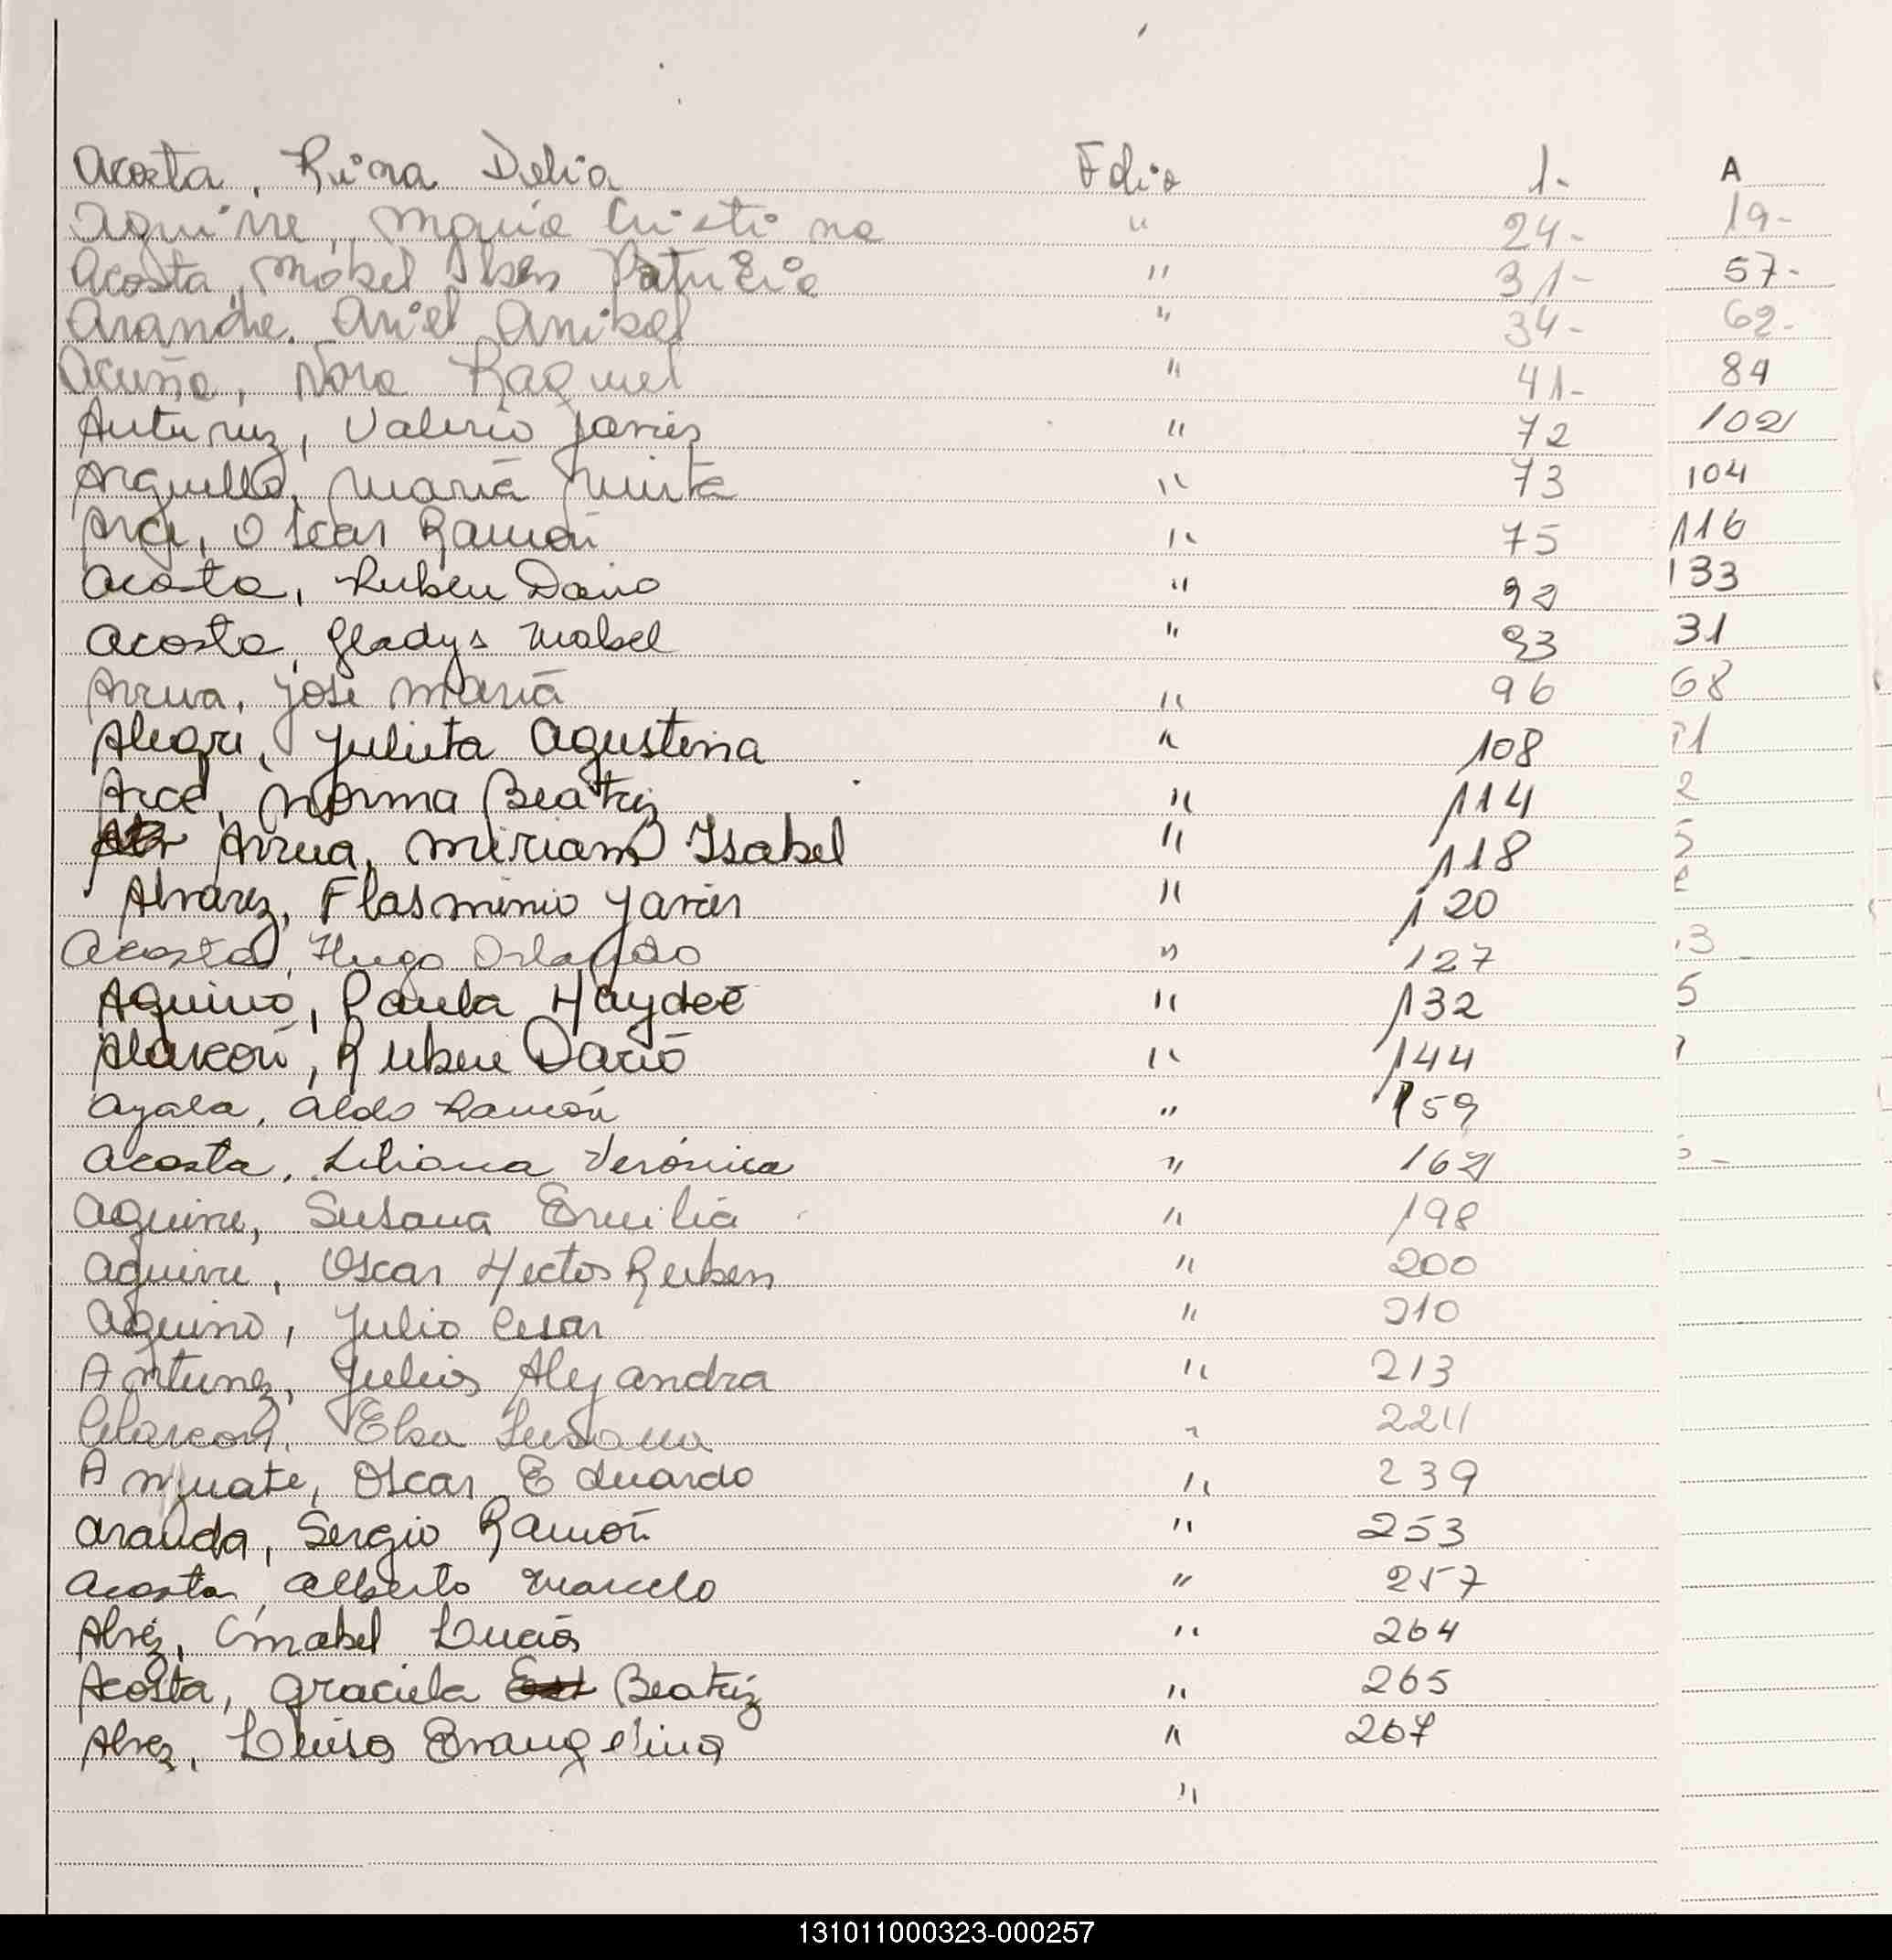 Acosta, Rina Delia Folio 1.- A
Aguirre, Maria Cristina " 24.- 19-
Acosta, Mabel Patricia " 31- 57-
Aranda, Ariel Anibal " 34- 62-
Acuña, Nora Raquel " 41- 84
Valerio Javier " 72 102
Arguello, Maria " 73 104
Arce, Oscar Ramón " 75 116
Acosta, Ruben Dario " 92 133
Acosta, Gladys Mabel " 93 31
Arrua, José María " 96 68
Alegre, Julieta Agustina " 108
Arce, Norma Beatriz " 114 2
Arrua, Miriam Isabel " 118 5
Alvarez, Flasminio Javier " 120
Acosta, Hugo Orlando " 127 3
Aquino, Paula Haydeé " 132 5
Alarcón, Ruben Darió " 144
Ayala, Aldo Ramón " 159
Acosta, Liliana Verónica " 162
Aguirre, Susana Emilia " 198
Aguirre, Oscar Hector Ruben " 200
Aquino, Julio Cesar " 210
Antunez, Alejandra " 213
Alarcon, Elsa Susana " 224
Oscar Eduardo " 239
Aranda, Sergio Ramón " 253
Acosta, Alberto Marcelo " 257
Alvez, Lucia " 264
Acosta, Graciela Beatriz " 265
Alvez, Luisa Evangelina " 267
"
131011000323-000257